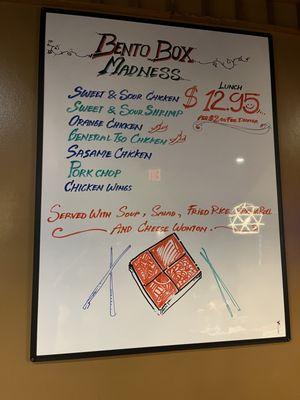 Bento Box
Madness
Lunch
$12.95
Sweet & Sour Chicken
Sweet & Sour Shrimp
Orange Chicken
General Tso Chicken
Sasame Chicken
Pork chop
Chicken Wings
Served With Soup, Salad, Fried Rice, Roll
And Cheese Wonton.